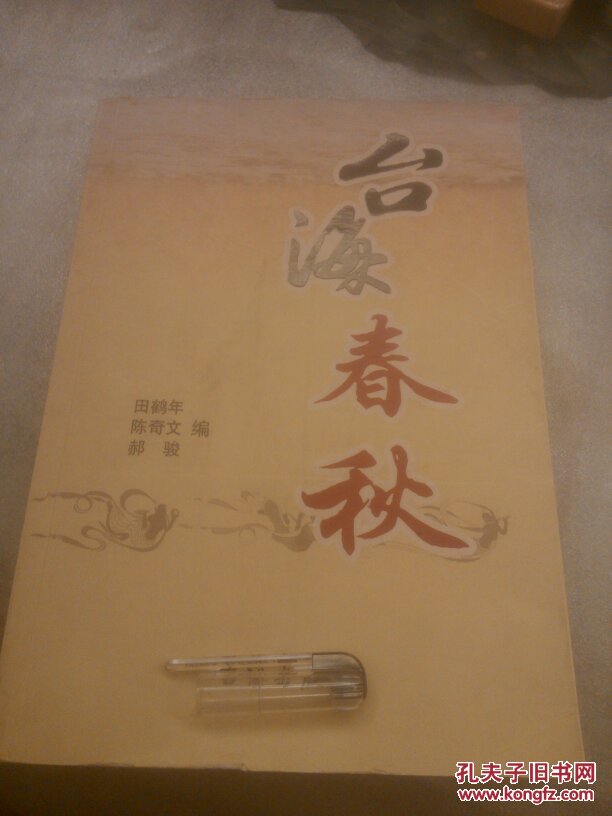 台海春秋
田鹤年
陈奇文 编
郝 骏
孔夫子旧书网
www.kongfz.com